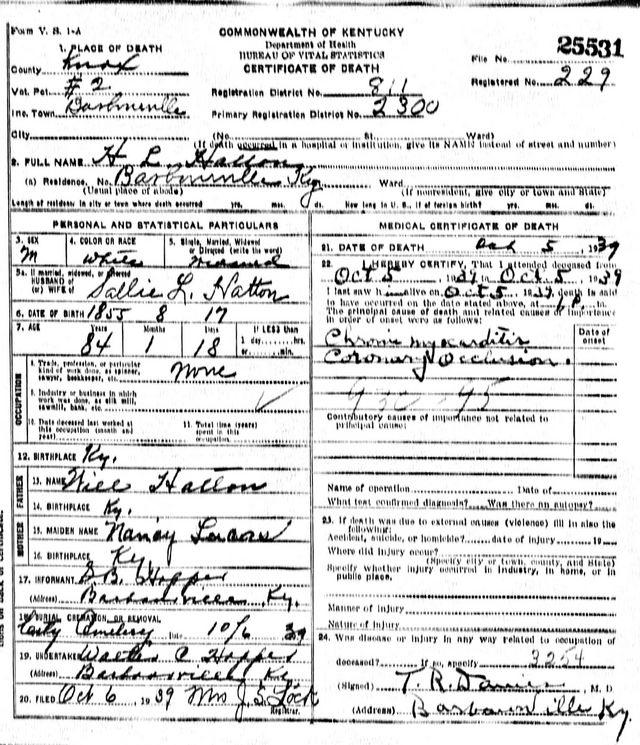 Form V. S. 1-A
COMMONWEALTH OF KENTUCKY
Department of Health
BUREAU OF VITAL STATISTICS
CERTIFICATE OF DEATH
25531
File No.
Registered No. 229
1. PLACE OF DEATH
County Knox
Vot. Pct. #2
Inc. Town Barbourville
Registration District No. 811
Primary Registration District No. 2300
City (No. St. Ward)
(If death occurred in a hospital or institution, give its NAME instead of street and number)
2. FULL NAME H L Hatton
(a) Residence, No. Barbourville Ky Ward
(Usual place of abode) (If nonresident, give city or town and State)
Length of residence in city or town where death occurred yrs. mos. ds. How long in U. S., if of foreign birth? yrs. mos. ds.
PERSONAL AND STATISTICAL PARTICULARS
3. SEX M
4. COLOR OR RACE White
5. Single, Married, Widowed or Divorced (write the word)
5a. If married, widowed, or divorced
HUSBAND of
(or) WIFE of Sallie L. Hatton
6. DATE OF BIRTH 1855 8 17
7. AGE Years Months Days If LESS than
84 1 18 1 day, hrs. or min.
8. Trade, profession, or particular kind of work done, as spinner, sawyer, bookkeeper, etc. None
9. Industry or business in which work was done, as silk mill, sawmill, bank, etc.
10. Date deceased last worked at this occupation (month and year)
11. Total time (years) spent in this occupation
OCCUPATION
12. BIRTHPLACE Ky.
FATHER
13. NAME Will Hatton
14. BIRTHPLACE Ky.
MOTHER
15. MAIDEN NAME Nancy
16. BIRTHPLACE Ky
17. INFORMANT B. Hopper
(Address) Barbourville Ky.
18. BURIAL, CREMATION OR REMOVAL
Cemetery Date 10/6 39
19. UNDERTAKER Walter C Hopper
(Address) Barbourville Ky
20. FILED Oct 6, 1939 Mrs J. S. Lock
Registrar.
MEDICAL CERTIFICATE OF DEATH
21. DATE OF DEATH Oct 5, 1939
22. I HEREBY CERTIFY, That I attended deceased from
Oct 5, 1939, to Oct 5, 1939
I last saw h alive on Oct 5, 1939, death is said
to have occurred on the date stated above, at
The principal cause of death and related causes of importance
in order of onset were as follows:
Date of onset
Chronic myocarditis
Coronary Occlusion.
Contributory causes of importance not related to
principal cause:
Name of operation Date of
What test confirmed diagnosis? Was there an autopsy?
23. If death was due to external causes (violence) fill in also the
following:
Accident, suicide, or homicide? date of injury 19
Where did injury occur?
(Specify city or town, county, and State)
Specify whether injury occurred in industry, in home, or in
public place.
Manner of injury
Nature of injury
24. Was disease or injury in any way related to occupation of
deceased? If so, specify 3254
(Signed) T. R. Davies, M. D
(Address) Barbourville Ky